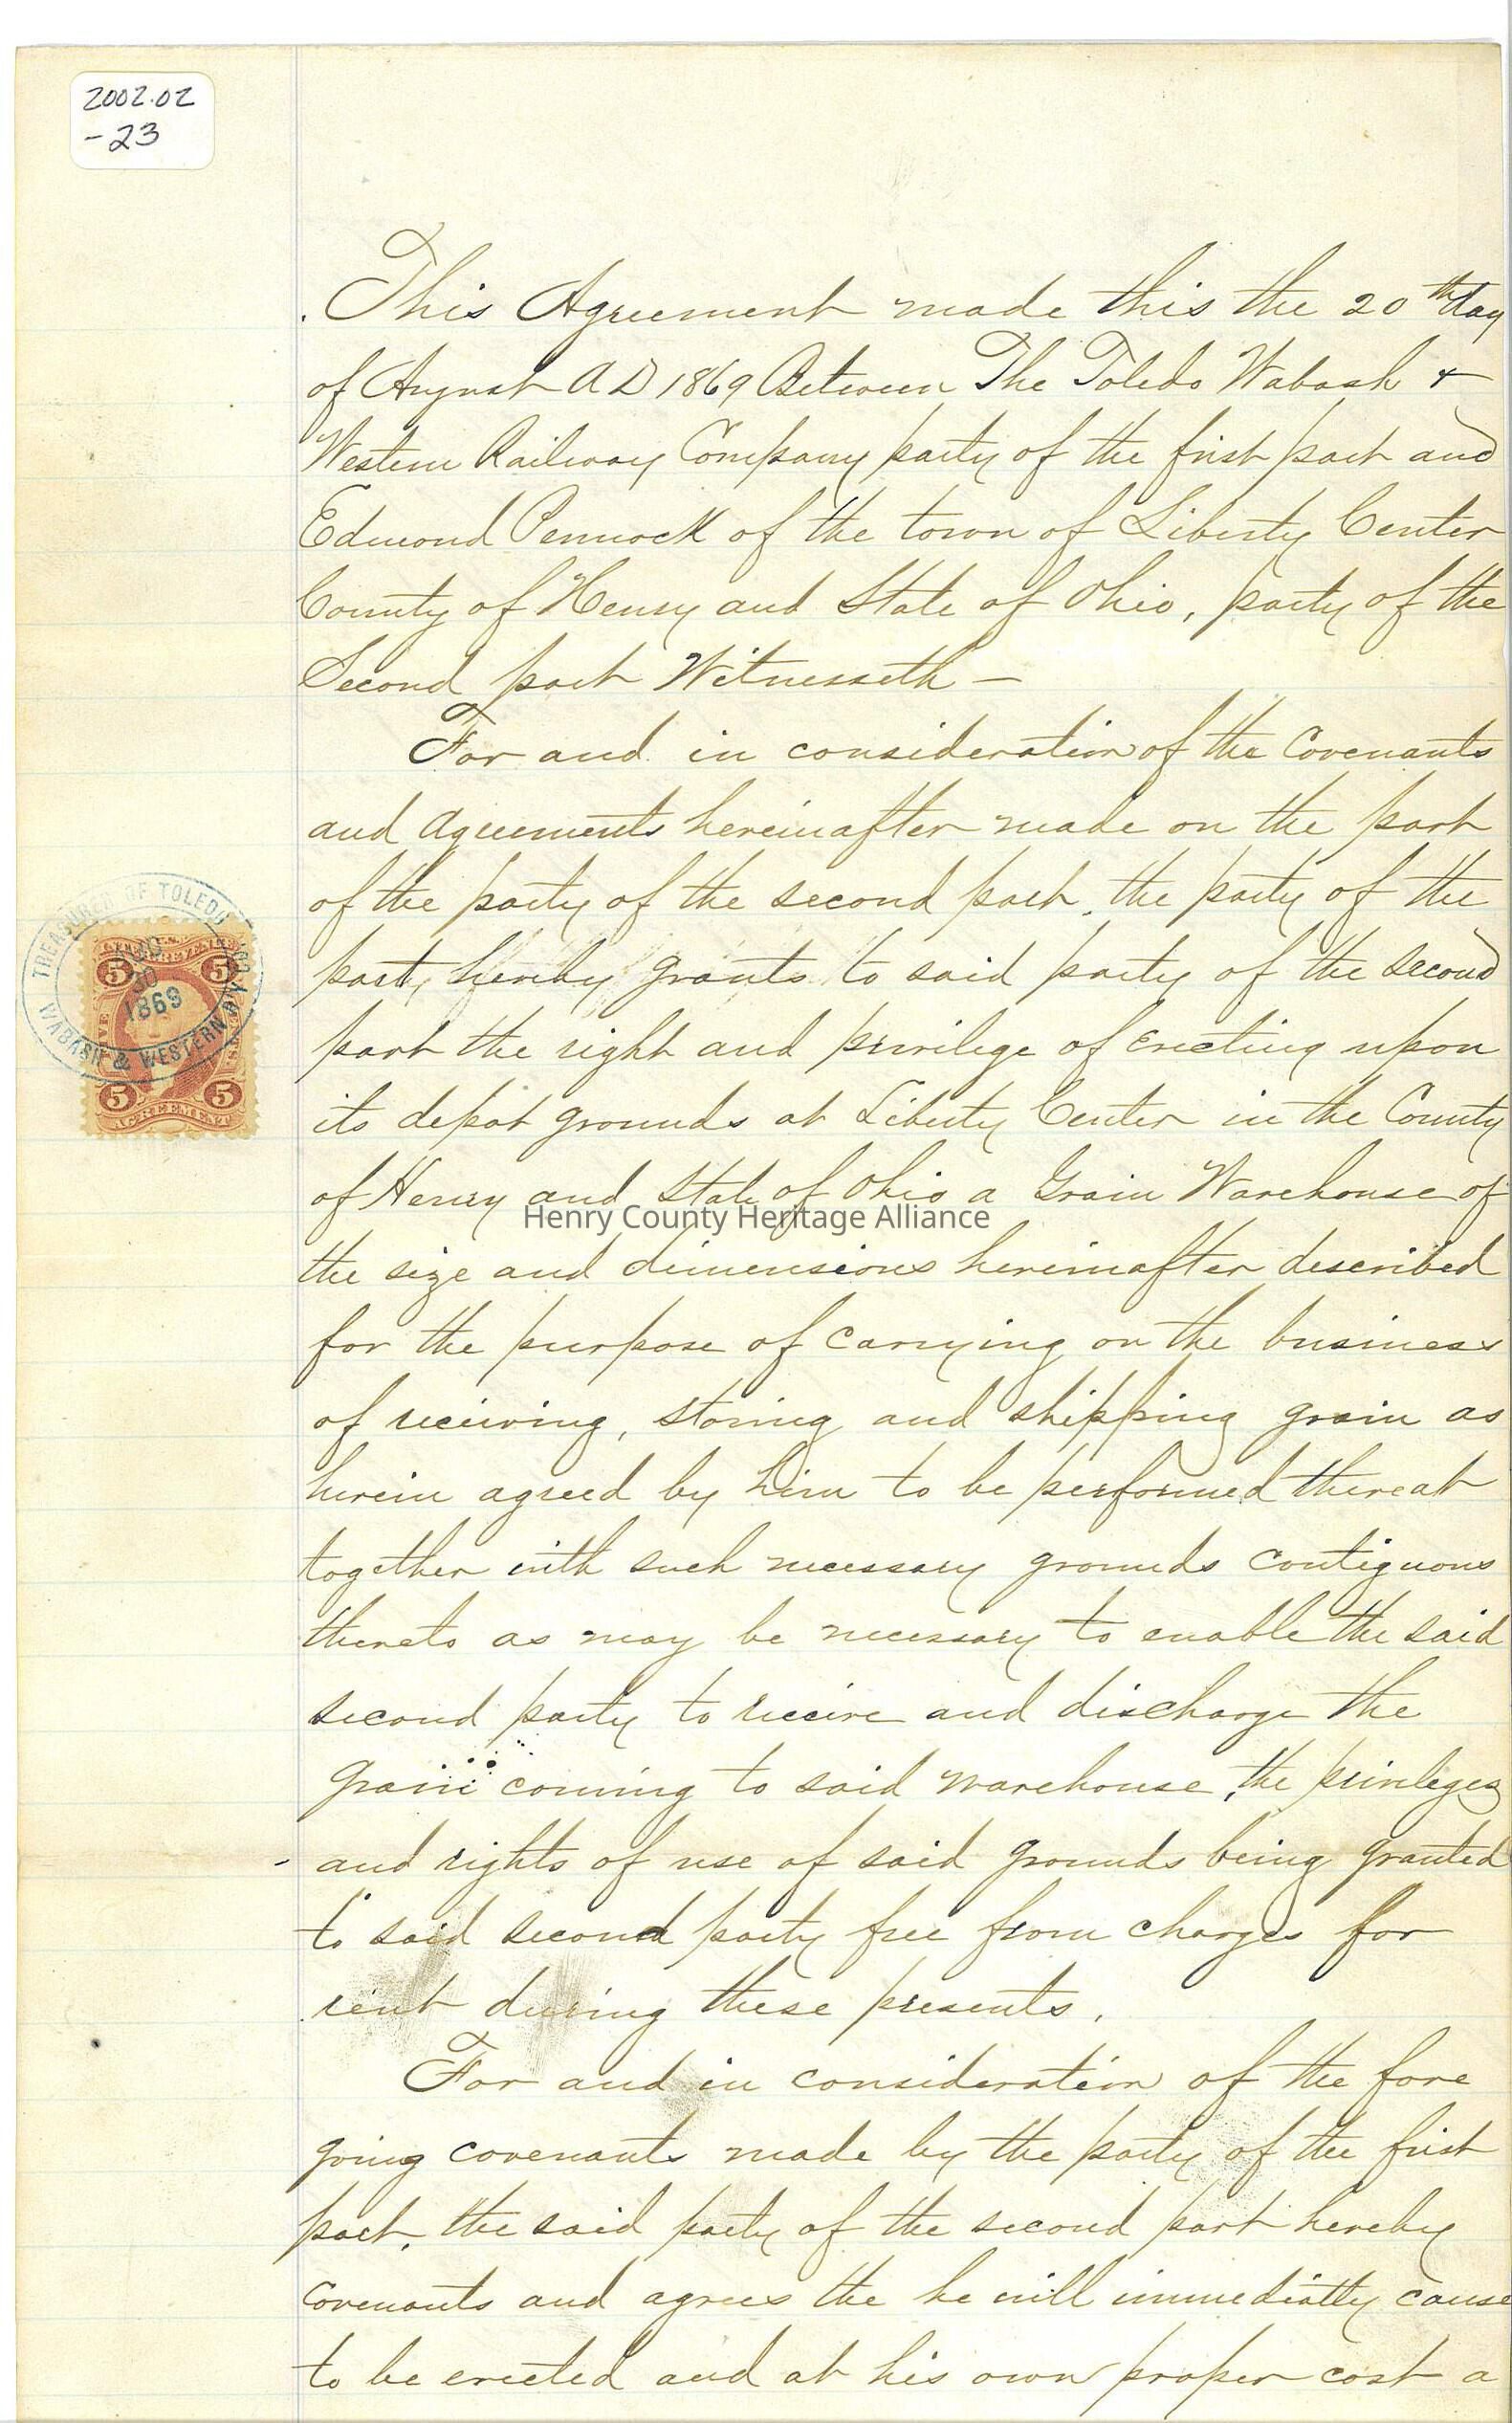 2002.02
-23
This Agreement made this the 20th day
of August AD 1869 Between The Toledo Wabash &
Western Railway Company party of the first part and
Edmond Pennock of the town of Liberty Center
County of Henry and State of Ohio, party of the
Second part Witnesseth –
For and in consideration of the Covenants
and agreements hereinafter made on the part
of the party of the second part, the party of the
part, hereby grants to said party of the second
part the right and privilege of Erecting upon
its depot grounds at Liberty Center in the County
of Henry and State of Ohio a Grain Warehouse of
Henry County Heritage Alliance
the size and dimensions hereinafter described
for the purpose of carrying on the business
of receiving, storing and shipping grain as
herein agreed by him to be performed thereat
together with such necessary grounds contiguous
thereto as may be necessary to enable the said
second party to receive and discharge the
grain coming to said warehouse, the privileges
and rights of use of said grounds being granted
to said second party free from charges for
rent during these presents.
For and in consideration of the fore
going covenants made by the party of the first
part, the said party of the second part hereby
covenants and agrees the he will immediatly cause
to be erected and at his own proper cost a
TREASURER OF TOLEDO
WABASH & WESTERN RY CO
30
1869
5 5
5 5
AGREEMENT